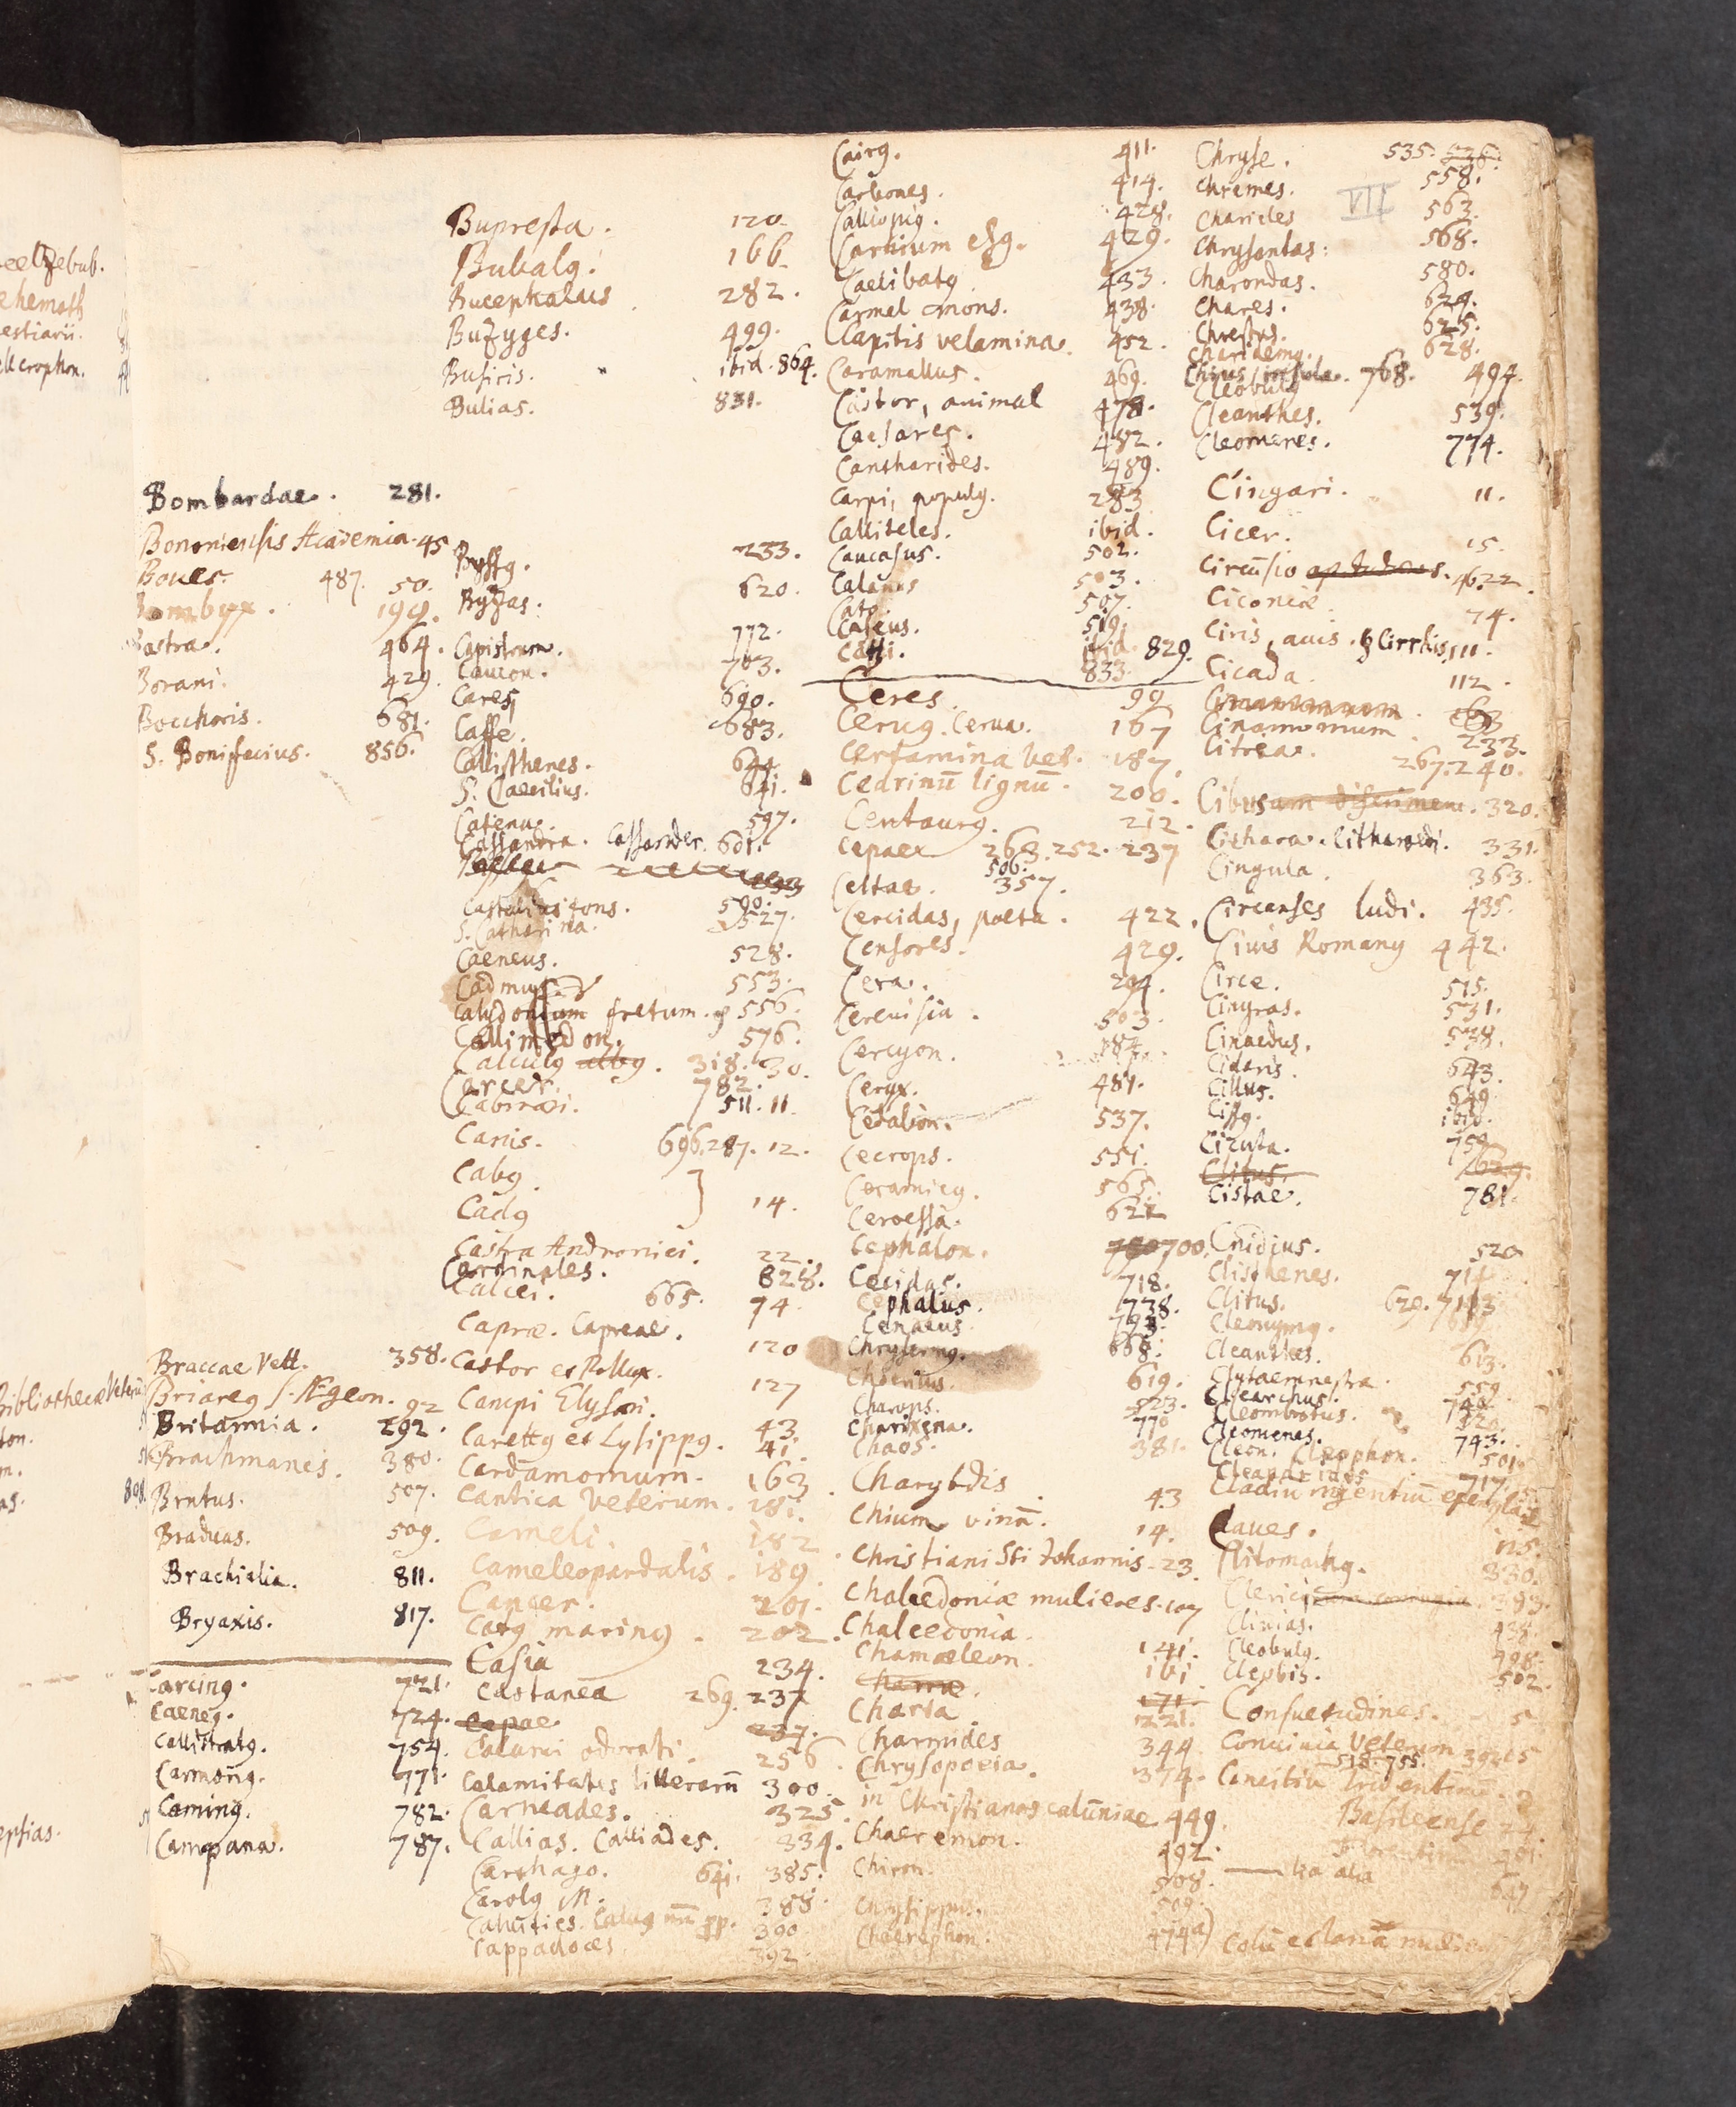 Bombardae. 281.
Bononiensis Academia. 45
Boues. 487. 50.
Bombyx. 199.
464.
Borani. 429.
Bocchoris. 681.
S. Bonifacius. 856.
Braccae Vett. 358.
Briareg s. Ægeon. 92
Britannia. 292.
Brachmanes. 380.
Brutus. 507.
Braduas. 509.
Brachialia. 811.
Bryaxis. 817.
Carcing. 721.
Caeneg. 724.
Callistratg. 754.
Carmong. 771.
Caming. 782.
Campana. 787.
Bupresta. 120.
Bubalg. 166.
Bucephalus 282.
Buzyges. 499.
Busiris. ibid. 864.
Bulias. 831.
Byssg. 233.
Byzas. 620.
Capistrum. 772.
Caucon. 703.
Cares, 690.
Caffe. 683.
Callisthenes. 644
S. Caecilius. 641.
Catena. 597.
Cassandra. Cassander. 601.
Castalius fons. 500.
S. Catharina. 527.
Caeneus. 528.
Cadmus 553.
Calydonium fretum. 556.
Callimedon. 576.
Calculg albg. 318. 30.
Carcer. 782.
Cabiraei. 511. 11.
Canis. 696. 287. 12.
Cabg.
Cadg 14.
Castra Andronici. 22.
828.
Calcei. 665. 74.
Capræ. Capreae. 120
Castor et Pollux. 127
Campi Elysaei. 43.
Carettg et Lysippg. 41.
Cardamomum. 163.
Cantica Veterum. 181.
Cameli. 182
Cameleopardalis. 189.
Cancer. 201.
Catg maring. 202.
Casia 234.
Castanea 269. 237
Cepae. 237.
Calami odorati. 256.
Calamitates litterarū 300.
Carneades. 325.
Callias. Calliades. 334.
Carthago. 641. 385.
Carolg M. 388.
390
Cappadoces 392.
Cairg. 411.
Carbones. 414.
Calliopig. 428.
429.
Caelibatg 433.
Carmel mons. 438.
Capitis velamina. 452.
Caramallus. 469.
Castor, animal 478.
Caesares. 482.
Cantharides. 489.
Carpi, populg. 283
Calliteles. ibid.
Caucasus. 502.
Calanus 503.
Cato. 507.
Caseus. 519.
Catti. ibid. 829.
833.
Ceres 99
Cerug. Cerua. 167
Certamina Vet. 187.
Cedrinū lignū. 200.
Centaurg. 212.
Cepaex 263. 252. 237
Celtae. 506. 357.
Cercidas, poeta. 422.
Censores. 429.
Cera. 294.
Cereuisia. 503.
Cercyon. 584.
Ceryx. 481.
Cedalion. 537.
Cecrops. 551.
Ceramicg. 565.
Ceroessa. 621
Cephalon. 700.
Cecidas. 718.
Cephalus. 738.
Cenaeus. 793.
Chrysermg. 668.
619.
Charops. 523.
Charixena. 770
Chaos. 381.
Charybdis 43
Chium vinū. 14.
Christiani Sti Johannis. 23.
Chalcedoniæ mulieres. 107
Chalcedonia. 141.
Chamæleon. 161
171.
Charta 221.
Charmides 344
Chrysopoeia. 374.
in Christianos calūniae 449.
Chaeremon. 492.
Chiron. 508.
Chrysippus. 509.
Chaerephon. 474a)
Chryse. 535. 536.
Chremes. 558.
Charicles 563.
VII
Chrysantas: 568.
Charondas. 580.
Chares. 624.
Chrestus. 625.
Charidemg. 628.
Chius insula. 768.
Cleobulg 494.
Cleanthes. 539.
Cleomenes. 774.
Cingari. 11.
Cicer. 15.
Circūsio 4622.
Ciconiæ. 74.
Ciris, auis. & Cirrhis, 111.
Cicada. 112.
Cinamomum. 233.
Citrea. 267. 240.
Cibus am discrimen. 320.
Cithara. Citharœdi. 331.
Cingula. 363.
Circenses ludi. 435.
Ciuis Romang 442.
Circe. 515.
Cinyras. 531.
Cinaedus. 538.
Cidaris. 643.
Cillus. 649.
Cissg. ibid.
Cicuta. 759.
Clitus.
Cistae. 781.
Cnidius. 520
Clisthenes. 714
Clitus. 620. 7193
Cleonymg.
Cleanthes. 613.
Clytaemnestra. 559.
Clearchus. 749.
Cleombrotus.
Cleomenes. 743.
Cleon. Cleophon. 501.
Cleandrides 717.
Claues. 125.
Clitomachg. 330.
Clerici 393.
Clinias. 438.
Cleobulg. 498.
Cleobis. 502.
Consuetudines. 5
Conuiuia Veterum 39265
518. 755.
Conciliū Tridentinū.
Basileense 24.
491.
alia 647
eelzebub.
ehemoth
estiarii.
ellerophon.
Bibliothecæ Veterū
898.